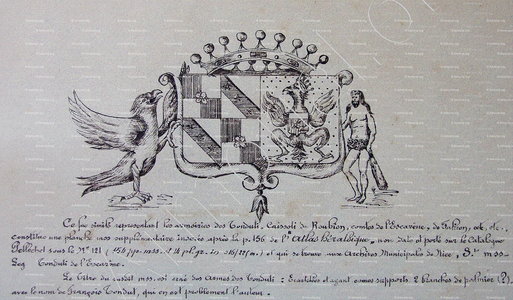 Ce fac simile représentant les armoiries des Tonduti, Caissoti de Roubion, comtes de l'Escarène, de Falicon, etc. etc.
constitue une planche mss supplémentaire insérée après la p. 156 de l'Atlas héraldique, non daté et porté sur le Catalogue
Pellechet sous le N° 121 (156 pp. mss.) et qui se trouve aux Archives Municipales de Nice, mss
Leg Tonduti de l'Escarène.
Le titre du susdit mss. est orné des Armes des Tonduti: Écartelées et ayant comme supports 2 branches de palmier (?),
avec le nom de François Tondut, qui en est probablement l'auteur.